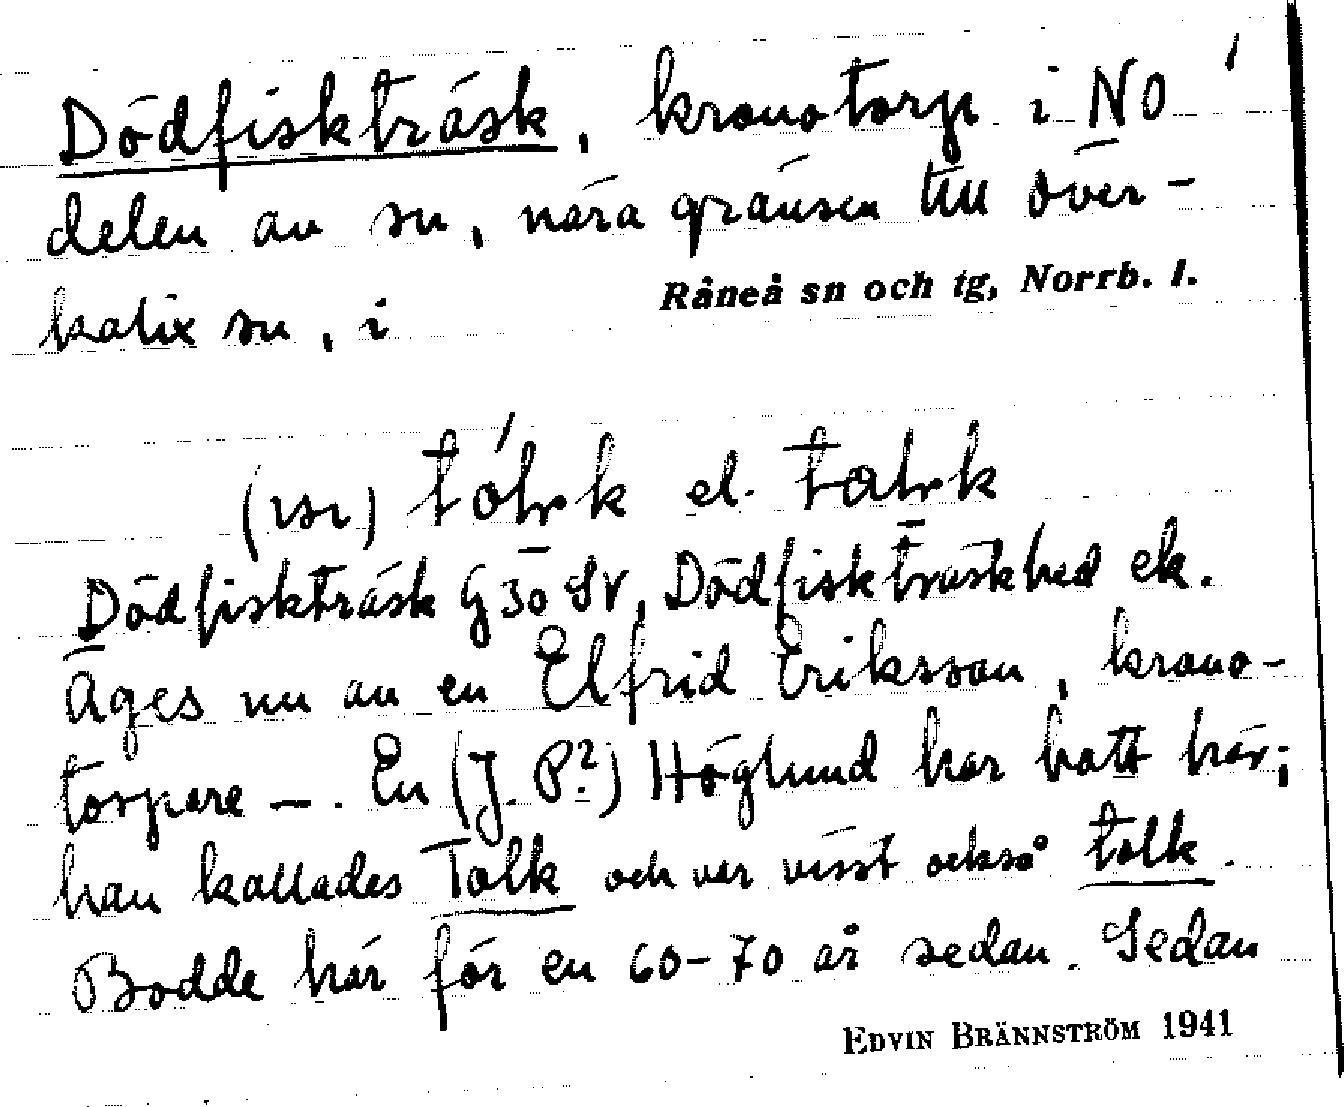 Dödfiskträsk, kronotorp i NO
delen av sn, nära gränsen till Över-
Råneå sn och tg, Norrb. l.
kalix sn, i
el.
Dödfiskträsk G 30 SV, Dödfiskträskhed ek.
Äges nu av en Elfrid Eriksson, krono-
torpare —. En (J. P.?) Höglund har bott här;
han kallades Tolk och var visst också tolk.
Bodde här för en 60-70 år sedan. Sedan
EDVIN BRÄNNSTRÖM 1941